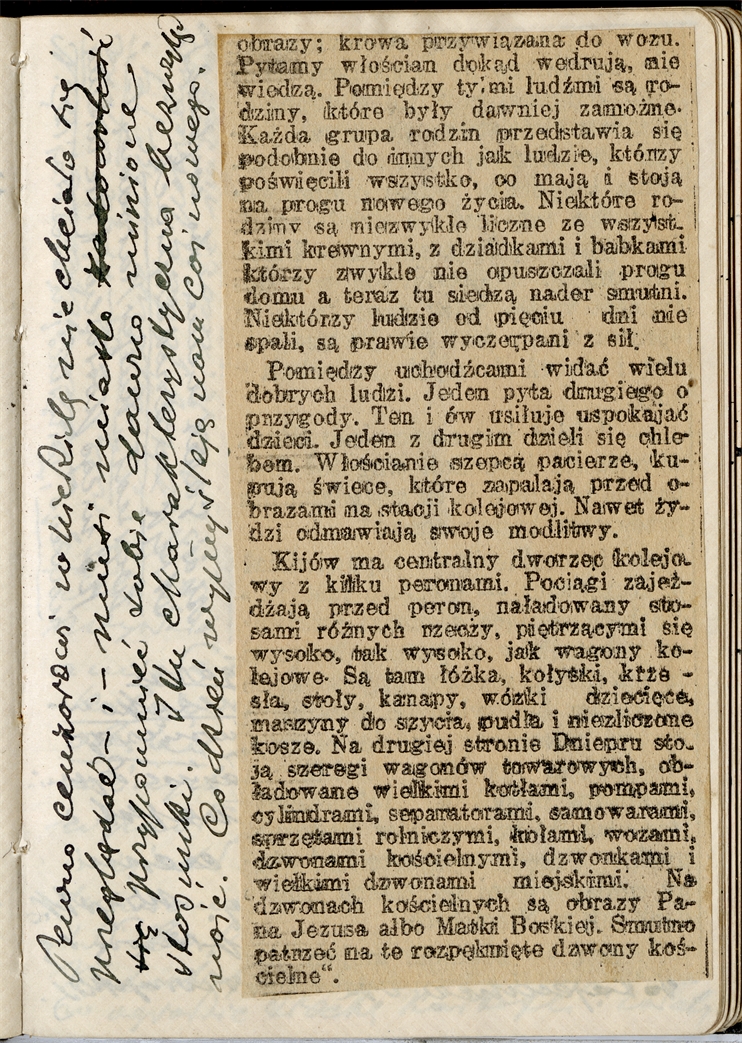 obrazy; krowa przywiązana do wozu.
Pytamy włościan dokąd wędrują, nie
wiedzą. Pomiędzy tymi ludźmi są ro-
dziny, które były dawniej zamożne.
Każda grupa rodzin przedstawia się
podobnie do innych jak ludzie, którzy
poświęcili wszystko, co mają i stoją
na progu nowego życia. Niektóre ro-
dziny są niezwykle liczne ze wszyst-
kimi krewnymi, z dziadkami i babkami
którzy zwykle nie opuszczali progu
domu a teraz tu siedzą nader smutni.
Niektórzy ludzie od pięciu dni nie
spali, są prawie wyczerpani z sił.
Pomiędzy uchodźcami widać wielu
dobrych ludzi. Jeden pyta drugiego o
przygody. Ten i ów usiłuje uspokajać
dzieci. Jeden z drugim dzieli się chle-
bem. Włościanie szepcą pacierze, ku-
pują świece, które zapalają przed o-
brazami na stacji kolejowej. Nawet ży-
dzi odmawiają swoje modlitwy.
Kijów ma centralny dworzec kolejo-
wy z kilku peronami. Pociągi zajeż-
dżają przed peron, naładowany sto-
sami różnych rzeczy, piętrzącymi się
wysoko, tak wysoko, jak wagony ko-
lejowe. Są tam łóżka, kołyski, krze-
sła, stoły, kanapy, wózki dziecięce,
maszyny do szycia, pudła i niezliczone
kosze. Na drugiej stronie Dniepru sto-
ją szeregi wagonów towarowych, ob-
ładowane wielkimi kotłami, pompami,
cylindrami, separatorami, samowarami,
sprzętami rolniczymi, kołami, wozami,
dzwonami kościelnymi, dzwonkami i
wielkimi dzwonami miejskimi. Na
dzwonach kościelnych są obrazy Pa-
na Jezusa albo Matki Boskiej. Smutno
patrzeć na te rozpęknięte dzwony koś-
cielne“.
Pewno cenzorowi nie chciało się
przeglądać – i – miast
się przypomnieć sobie dawno minione
stosunki. I tu charakterystyczna bezmyśl
ność. Co dzień wymyślają nam coś nowego.